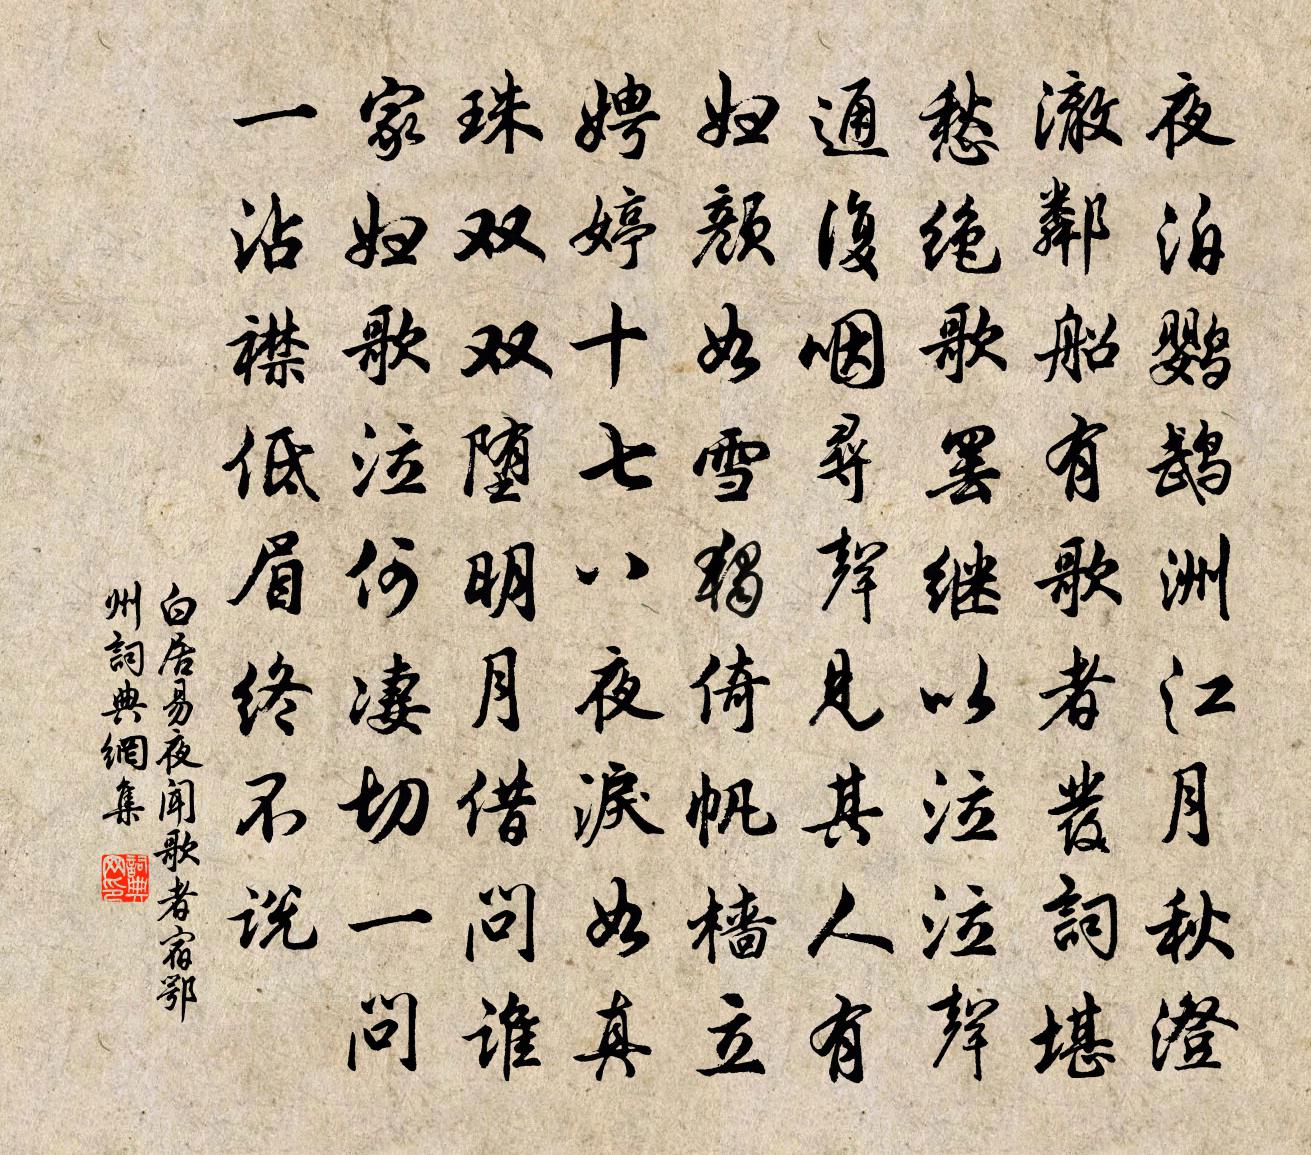 夜泊鹦鹉洲江月秋澄
澈鄰船有歌者發詞堪
愁絶歌罢継以泣泣聲
通復咽尋聲見其人有
妇顔如雪獨倚帆樯立
娉婷十七八夜淚如真
珠双双堕明月借问谁
家妇歌泣何凄切一问
一沾襟低眉终不说
白居易夜闻歌者宿鄂
州詞典網集
詞典
网印